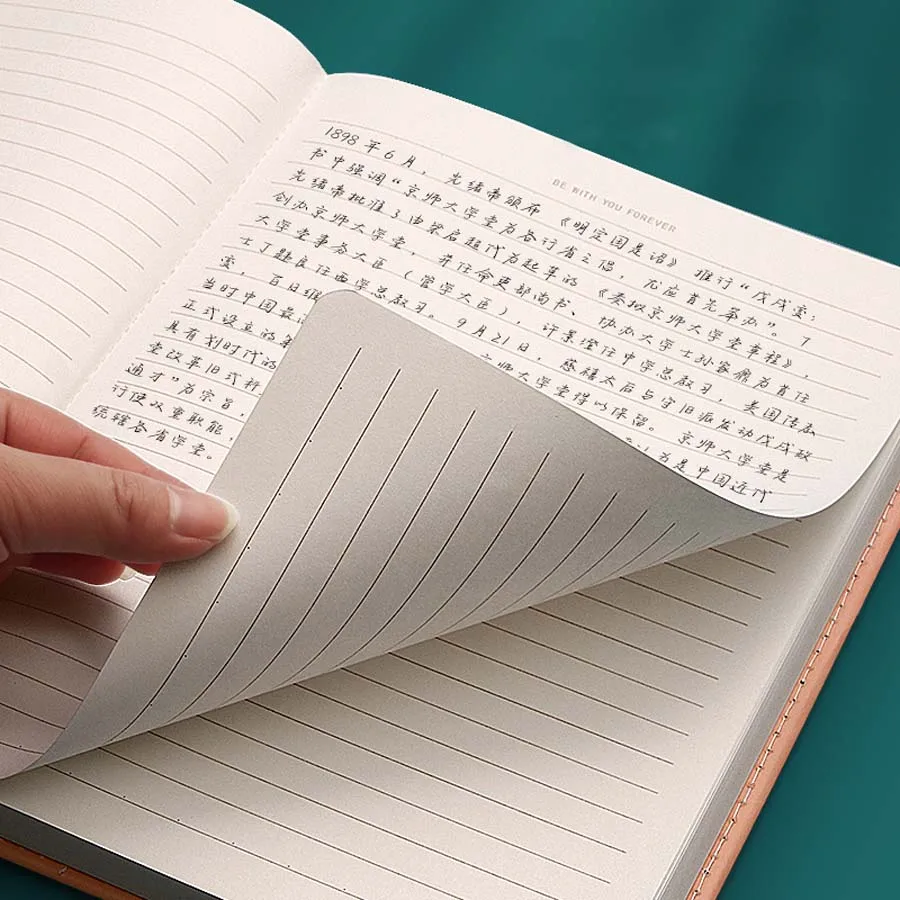 BE WITH YOU FOREVER
1898 年 6 月，光绪帝颁布《明定国是诏》推行“戊戌变
书中强调“京师大学堂为各行省之倡，尤应首先举办”。7
光绪帝批准了由梁启超代为起草的《奏拟京师大学堂章程》，
创办京师大学堂，并任命吏部尚书、协办大学士孙家鼐为首任
大学堂事务大臣（管学大臣），许景澄任中学总教习，美国传教
士丁韪良任西学总教习。9月21日，慈禧太后与守旧派发动戊戌政
变，百日维 师大学堂得以保留。京师大学堂是
当时中国最 为是中国近代
正式设立的
具有划时代的
堂改革旧式科
通才”为宗旨，
行使双重职能，
统辖各省学堂。